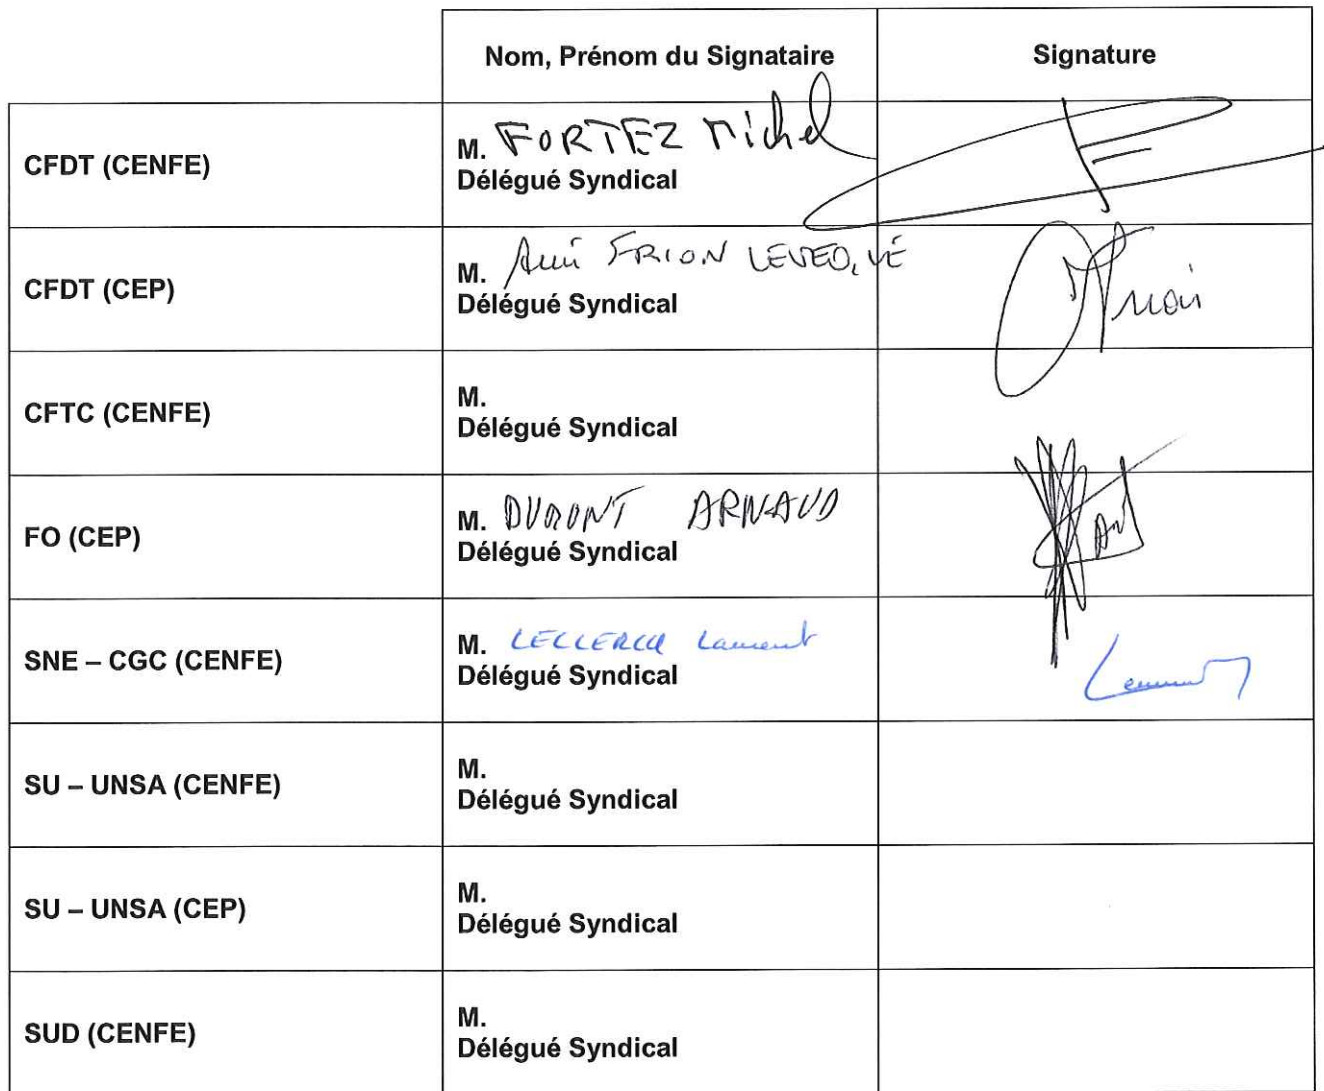 Nom, Prénom du Signataire Signature
CFDT (CENFE)
M. FORTEZ Michel
Délégué Syndical
CFDT (CEP)
M. FRION LEVEQUE
Délégué Syndical
CFTC (CENFE)
M.
Délégué Syndical
FO (CEP)
M. DUMONT ARNAUD
Délégué Syndical
SNE – CGC (CENFE)
M. LECLERCQ Laurent
Délégué Syndical
SU – UNSA (CENFE)
M.
Délégué Syndical
SU – UNSA (CEP)
M.
Délégué Syndical
SUD (CENFE)
M.
Délégué Syndical